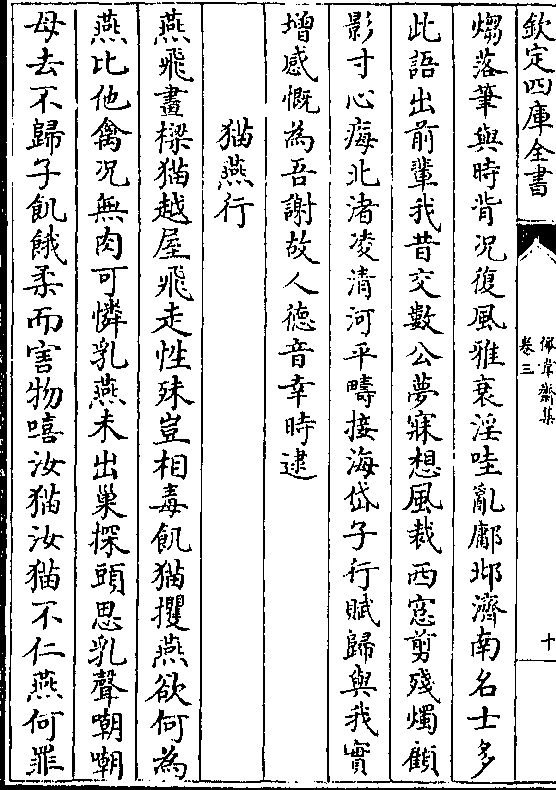 欽定四庫全書
佩韋齋集
卷三
十
爝落筆與時背况復風雅衰淫哇亂鄘邶濟南名士多
此語出前輩我昔交數公夢寐想風裁西窓剪殘燭顧
影寸心痗北渚凌清河平疇接海岱子行賦歸與我實
增感慨為吾謝故人德音幸時逮
猫燕行
燕飛畫樑猫越屋飛走性殊豈相毒飢猫攫燕欲何為
燕比他禽况無肉可憐乳燕未出巢探頭思乳聲嘲嘲
母去不歸子飢餓柔而害物嘻汝猫汝猫不仁燕何罪